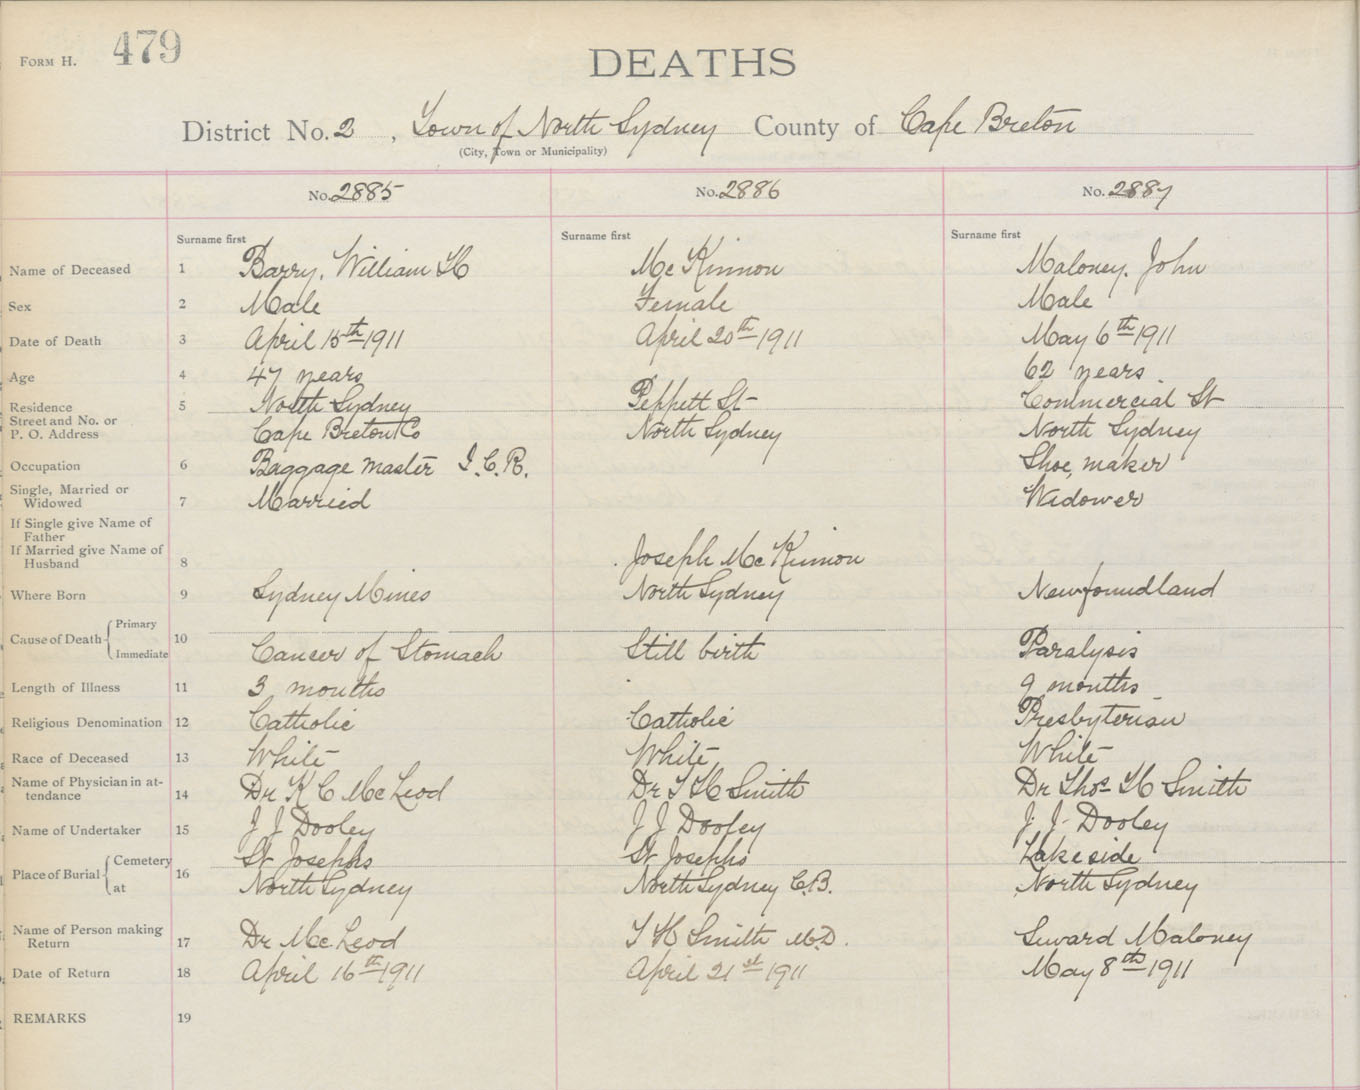 FORM H. 479
DEATHS
District No. 2, Town of North Sydney County of Cape Breton
(City, Town or Municipality)
No. 2885 No. 2886 No. 2887
Surname first Surname first Surname first
Name of Deceased 1 Barry, William H McKinnon Maloney. John
Sex 2 Male Female Male
Date of Death 3 April 15th 1911 April 20th 1911 May 6th 1911
Age 4 47 years 62 years
Residence 5 North Sydney Peppett St Commercial St
Street and No. or
P. O. Address Cape Breton Co North Sydney North Sydney
Occupation 6 Baggage master I.C.R. Shoe maker
Single, Married or
Widowed 7 Married Widower
If Single give Name of
Father
If Married give Name of
Husband 8 Joseph McKinnon
Where Born 9 Sydney Mines North Sydney Newfoundland
Primary
Cause of Death 10
Immediate Cancer of Stomach Still birth Paralysis
Length of Illness 11 3 months 9 months
Religious Denomination 12 Catholic Catholic Presbyterian
Race of Deceased 13 White White White
Name of Physician in at-
tendance 14 Dr K C McLeod Dr T H Smith Dr Thos H Smith
Name of Undertaker 15 J J Dooley J J Dooley J. J. Dooley
Cemetery St Josephs St Josephs Lakeside
Place of Burial 16
at North Sydney North Sydney C.B. North Sydney
Name of Person making
Return 17 Dr McLeod T H Smith M.D. Maloney
Date of Return 18 April 16th 1911 April 21st 1911 May 8th 1911
REMARKS 19